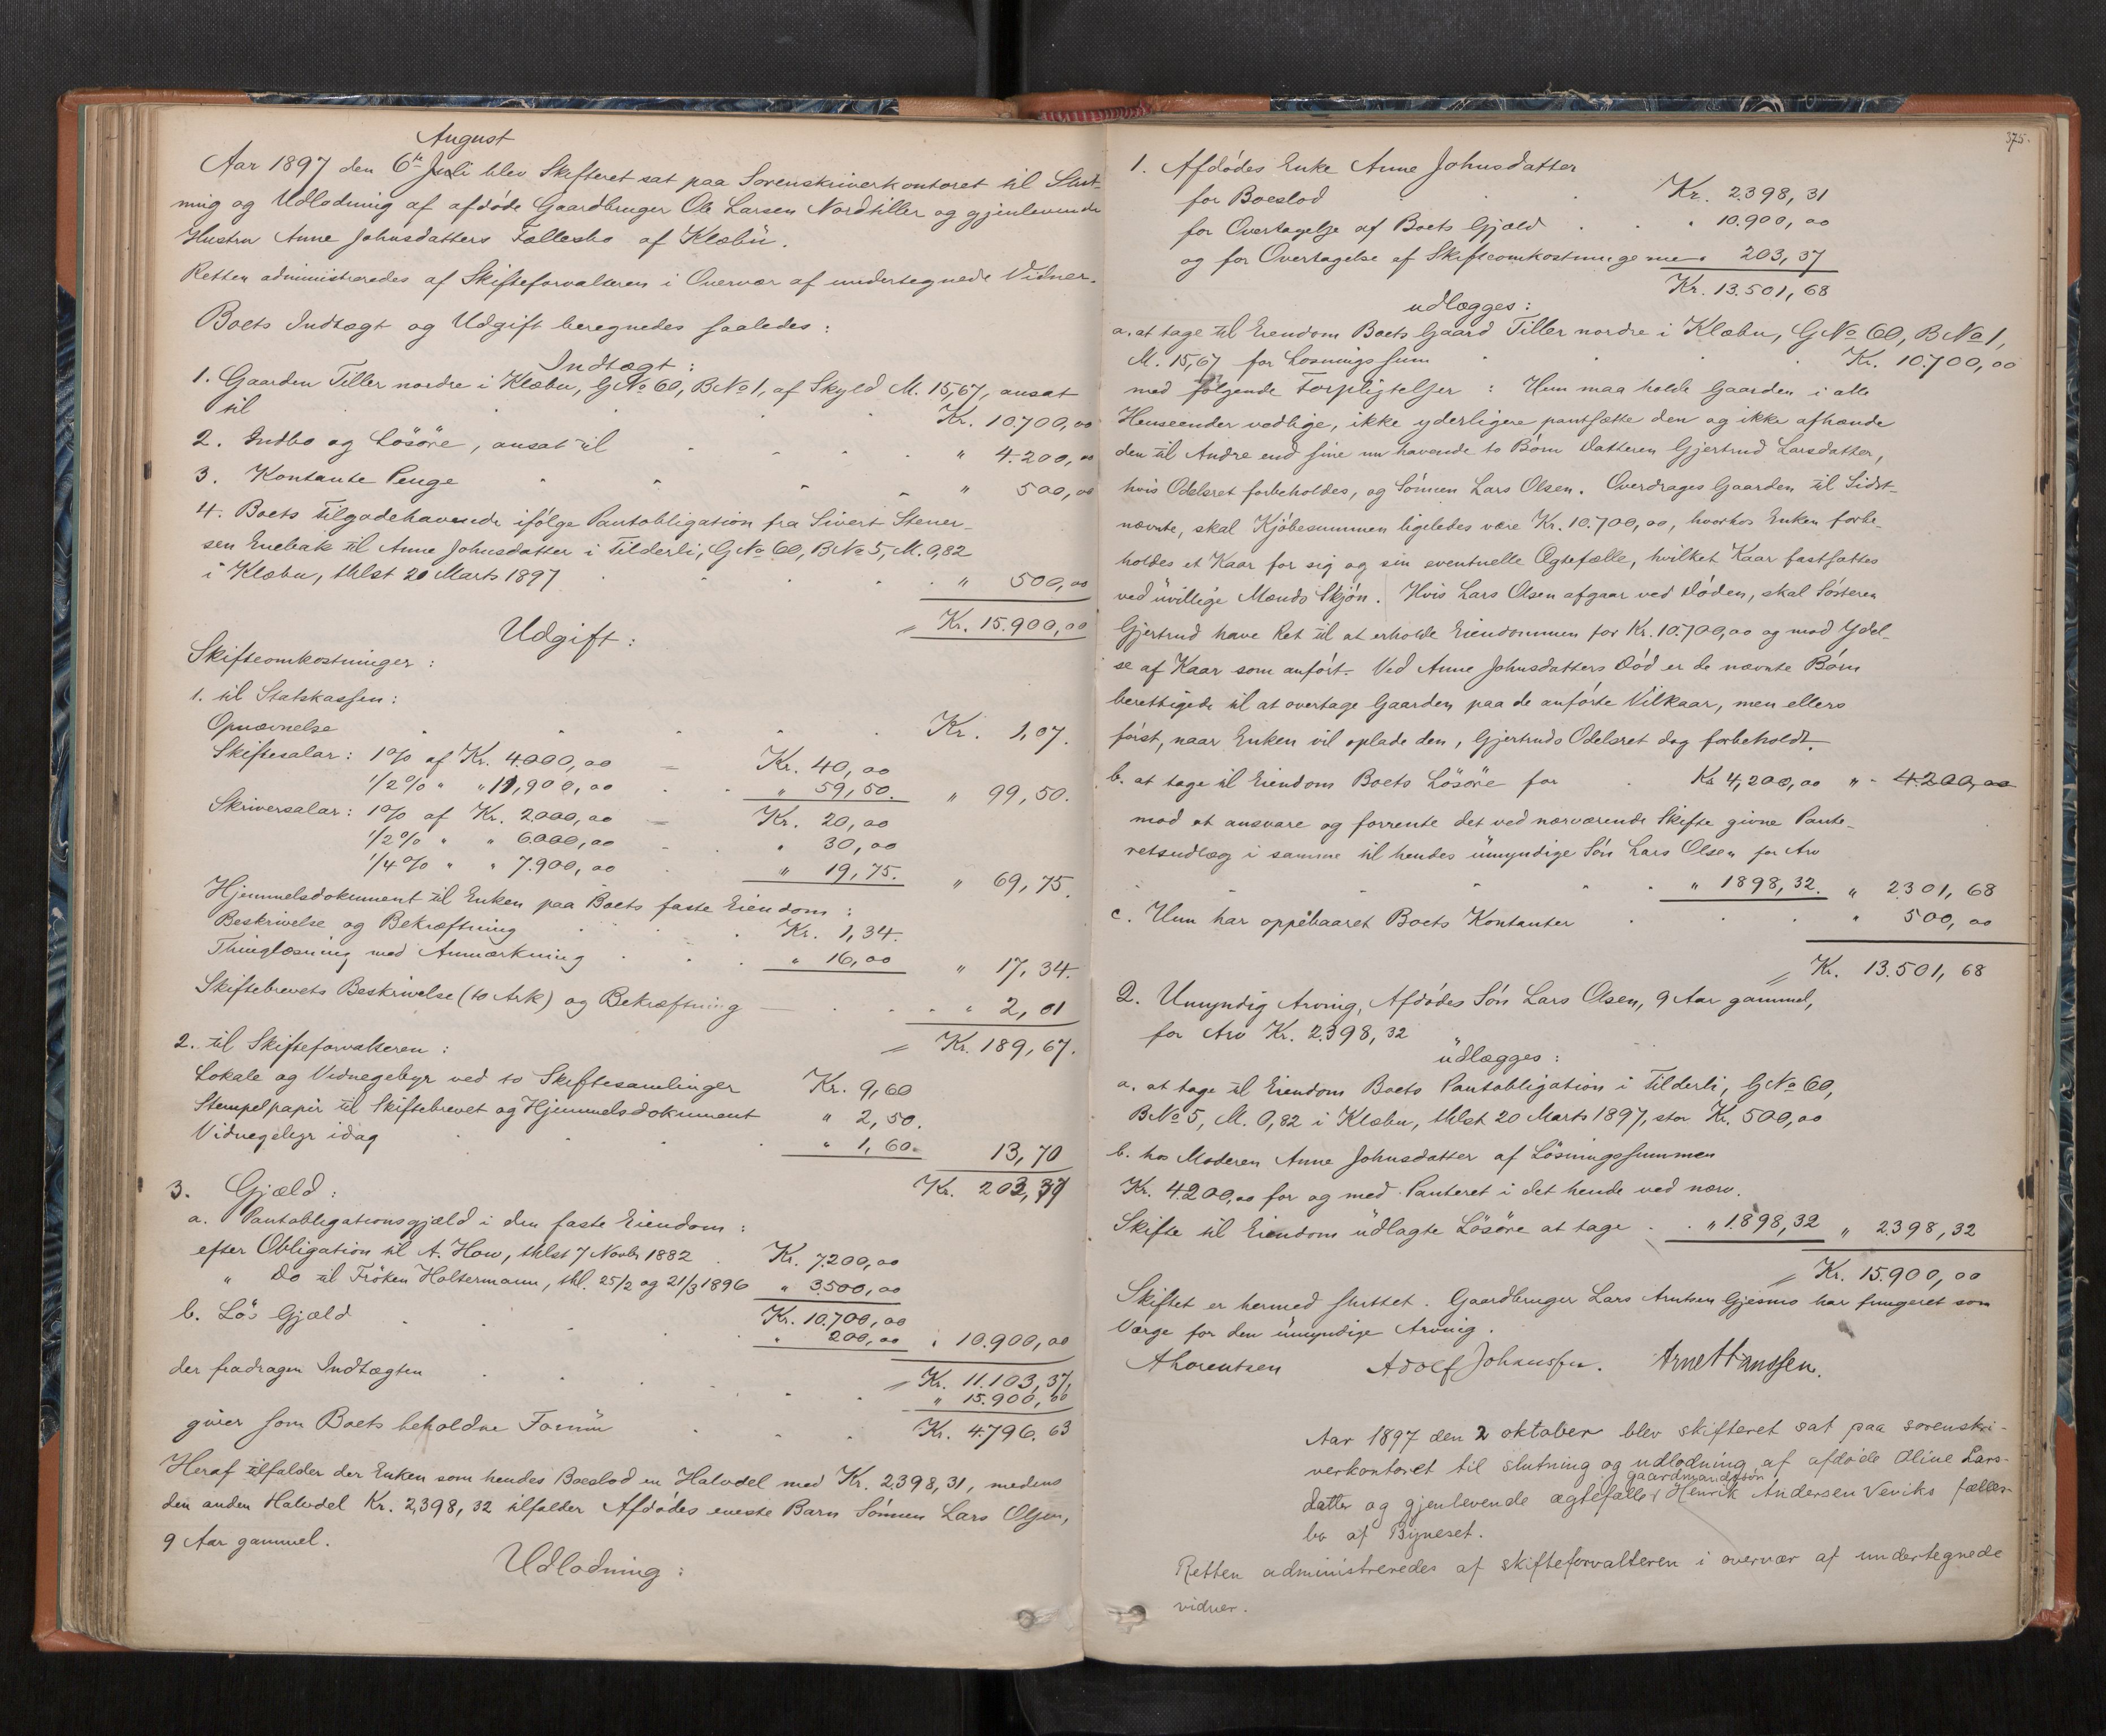 August
Aar 1897 den 6te Juli blev Skifteret sat paa Sorenskriverkontoret til Slut-
ning og Udlodning af afdøde Gaardbruger Ole Larsen Nordtiller og gjenlevende
Hustru Anne Johnsdatters Fællesbo af Klæbu.
Retten administreredes af Skifteforvalteren i Overvær af undertegnede Vidner.
Boets Indtægt og Udgift beregnedes saaledes:
Indtægt:
1. Gaarden Tiller nordre i Klæbu, GNo 60, BNo 1, af Skyld M. 15,67, ansat
til Kr. 10.700,00
2. Indbo og Løsøre, ansat til " 4.200,00
3. Kontante Penge " 500,00
4. Boets Tilgodehavende ifølge Pantobligation fra Sivert Stener-
sen Enebak til Anne Johnsdatter i Tilderli, GNo 60, BNo 5, M. 0,82
i Klæbu, thlst 20 Marts 1897 " 500,00
Kr. 15.900,00
Udgift:
Skifteomkostninger:
1. til Statskassen:
Opnævnelse Kr. 1,07.
Skiftesalar: 1% af Kr. 4.000,00 = Kr. 40,00
1/2% " " 11,900,00 " 59,50. " 99,50.
Skriversalar: 1% af Kr. 2000,00 = Kr. 20,00
1/2% " " 6000,00 - " 30,00
1/4% " " 7.900,00 " 19,75. " 69,75.
Hjemmelsdokument til Enken paa Boets faste Eiendom:
Beskrivelse og Bekræftning Kr. 1,34.
Thinglæsning med Anmærkning " 16,00 " 17,34.
Skiftebrevets Beskrivelse (to Ark) og Bekræftning " 2,01
Kr. 189,67.
2. til Skifteforvalteren:
Lokale og Vidnegebyr ved to Skiftesamlinger Kr. 9,60
Stempelpapir til Skiftebrevet og Hjemmelsdokument " 2,50.
Vidnegebyr idag " 1,60. 13,70
Kr. 203,37
3. Gjæld:
a. Pantobligationsgjæld i den faste Eiendom:
efter Obligation til A. How, thlst 7 Novbr 1882 Kr. 7.200,00
" Do til Frøken Holtermann, thl. 25/2 og 21/3 1896 " 3.500,00
Kr. 10.700,00
b. Løs Gjæld " 200,00 " 10.900,00
Kr. 11.103,37,
der fradragen Indtægten " 15.900,00
giver som Boets beholdne Formue Kr. 4.796.63
Heraf tilfalder der Enken som hendes Boeslod en Halvdel med Kr. 2,398,31, medens
den anden Halvdel Kr. 2,398,32 tilfalder Afdødes eneste Barn Sønnen Lars Olsen,
9 Aar gammel.
Udlodning:
375.
1. Afdødes Enke Anne Johnsdatter
for Boeslod Kr. 2.398,31
for Overtagelse af Boets Gjæld " 10.900,00
og for Overtagelse af Skifteomkostningerne " 203,37
Kr. 13.501,68
udlægges:
a. at tage til Eiendom Boets Gaard Tiller nordre i Klæbu, GNo 60, BNo 1,
M. 15,67 for Løsningssum Kr. 10.700,00
med følgende Forpligtelser: Hun maa holde Gaarden i alle
Henseender vedlige, ikke yderligere pantsætte den og ikke afhænde
den til Andre end sine nu havende to Børn Datteren Gjertrud Larsdatter,
hvis Odelsret forbeholdes, og Sønnen Lars Olsen. Overdrages Gaarden til Sidst-
nævnte, skal Kjøbesummen ligeledes være Kr. 10.700,00, hvorhos Enken forbe-
holdes et Kaar for sig og sin eventuelle Ægtefælle, hvilket Kaar fastsættes
ved uvillige Mænds Skjøn. Hvis Lars Olsen afgaar ved Døden, skal Søsteren
Gjertrud have Ret til at erholde Eiendommen for Kr. 10.700,00 og mod Ydel-
se af Kaar som anført. Ved Anne Johnsdatters Død er de nævnte Børn
berettigede til at overtage Gaarden paa de anførte Vilkaar, men ellers
først, naar Enken vil oplade den, Gjertruds Odelsret dog forbeholdt.
b. at tage til Eiendom Boets Løsøre for Kr 4,200,00 " - 4.200,00
mod at ansvare og forrente det ved nærværende Skifte givne Pante-
retsudlæg i samme til hendes umyndige Søn Lars Olsen for Arv
" 1898,32. " 2301,68
c. Hun har oppebaaret Boets Kontanter " 500,00
Kr. 13.501,68
2. Umyndig Arving, Afdødes Søn Lars Olsen, 9 Aar gammel,
for Arv Kr. 2.398,32
udlægges:
a. at tage til Eiendom Boets Pantobligation i Tilderli, GNo 60,
BNo 5, M. 0,82 i Klæbu, thlst 20 Marts 1897, stor Kr. 500,00
b. hos Moderen Anne Johnsdatter af Løsningssummen
Kr. 4.200,00 for og med Panteret i det hende ved nærv.
Skifte til Eiendom udlagte Løsøre at tage " 1.898,32 " 2.398,32
Kr. 15.900,00
Skiftet er hermed sluttet. Gaardbruger Lars Arntsen Gjesmo har fungeret som
Værge for den umyndige Arving.
A Lorentsen Adolf Johansen. Arne Hanssen.
Aar 1897 den 2 oktober blev skifteret sat paa sorenskri-
verkontoret til slutning og udlodning af afdøde Oline Lars-
gaardmandssøn
datter og gjenlevende ægtefælle Henrik Andersen Veviks fælles-
bo af Bynesset.
Retten administreredes af skifteforvalteren i overvær af undertegnede
vidner.